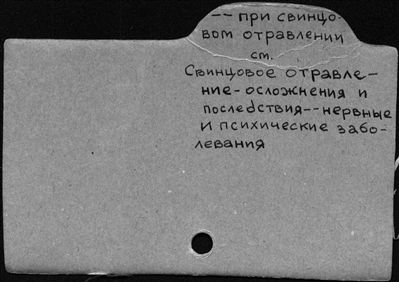 -- при свинцо-
вом отравлении
ст.
Свинцовое отравле-
ние-осложнения и
последствия--нервные
и психические забо-
левания